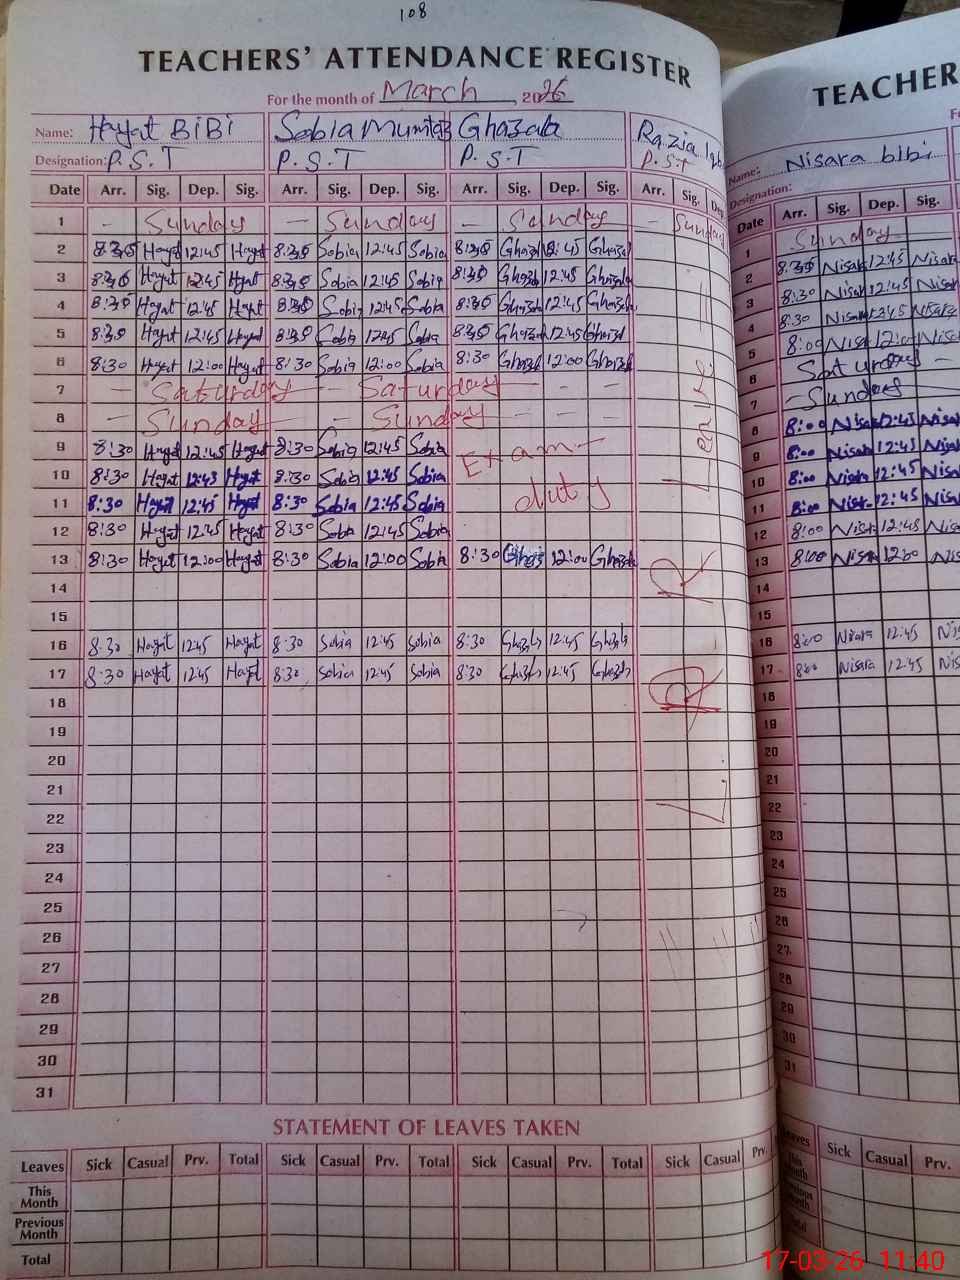 108
TEACHERS' ATTENDANCE REGISTER
For the month of March, 2026
Name: Hayat BiBi Sobia Mumtaz Ghazala Razia
Designation: P.S.T P.S.T P.S.T P.S.T
Date Arr. Sig. Dep. Sig. Arr. Sig. Dep. Sig. Arr. Sig. Dep. Sig. Arr. Sig. Dep.
1 - Sunday - Sunday - Sunday - Sunday
2 8:30 Hayat 12:45 Hayat 8:30 Sobia 12:45 Sobia 8:30 Ghazal 12:45 Ghazal
3 8:30 Hayat 12:45 Hayat 8:30 Sobia 12:45 Sobia 8:30 Ghazal 12:45 Ghazala
4 8:30 Hayat 12:45 Hayat 8:30 Sobia 12:45 Sobia 8:30 Ghazal 12:45 Ghazala
5 8:30 Hayat 12:45 Hayat 8:30 Sobia 12:45 Sobia 8:30 Ghazal 12:45 Ghazal
6 8:30 Hayat 12:00 Hayat 8:30 Sobia 12:00 Sobia 8:30 Ghazal 12:00 Ghazal
7 - Saturday - Saturday - - -
8 - Sunday - - Sunday - - -
9 8:30 Hayat 12:45 Hayat 8:30 Sobia 12:45 Sobia Exam
10 8:30 Hayat 12:45 Hayat 8:30 Sobia 12:45 Sobia
11 8:30 Hayat 12:45 Hayat 8:30 Sobia 12:45 Sobia duty
12 8:30 Hayat 12:45 Hayat 8:30 Sobia 12:45 Sobia
13 8:30 Hayat 12:00 Hayat 8:30 Sobia 12:00 Sobia 8:30 Ghazal 12:00 Ghazala
14
15
16 8:30 Hayat 12:45 Hayat 8:30 Sobia 12:45 Sobia 8:30 Ghazala 12:45 Ghazala
17 8:30 Hayat 12:45 Hayat 8:30 Sobia 12:45 Sobia 8:30 Ghazala 12:45 Ghazala
18
19
20
21
22
23
24
25
26
27
28
29
30
31
L.P.R Leave
STATEMENT OF LEAVES TAKEN
Leaves Sick Casual Prv. Total Sick Casual Prv. Total Sick Casual Prv. Total Sick Casual Prv.
This Month
Previous Month
Total
TEACHER
Name: Nisara bibi
Designation:
Date Arr. Sig. Dep. Sig.
1 Sunday
2 8:30 Nisara 12:45 Nisara
3 8:30 Nisar 12:45 Nisara
4 8:30 Nisar 12:45 Nisara
5 8:00 Nisa 12:00 Nisa
6 Saturday -
7 - Sunday
8 8:00 Nisar 12:45 Nisara
9 8:00 Nisara 12:45 Nisar
10 8:00 Nisara 12:45 Nisar
11 8:00 Nisar 12:45 Nisar
12 8:00 Nisar 12:45 Nisa
13 8:00 Nisar 12:00 Nis
14
15
16 8:00 Nisara 12:45 Nis
17 8:00 Nisara 12:45 Nis
18
19
20
21
22
23
24
25
26
27
28
29
30
31
Leaves Sick Casual Prv.
17-03-26 11:40